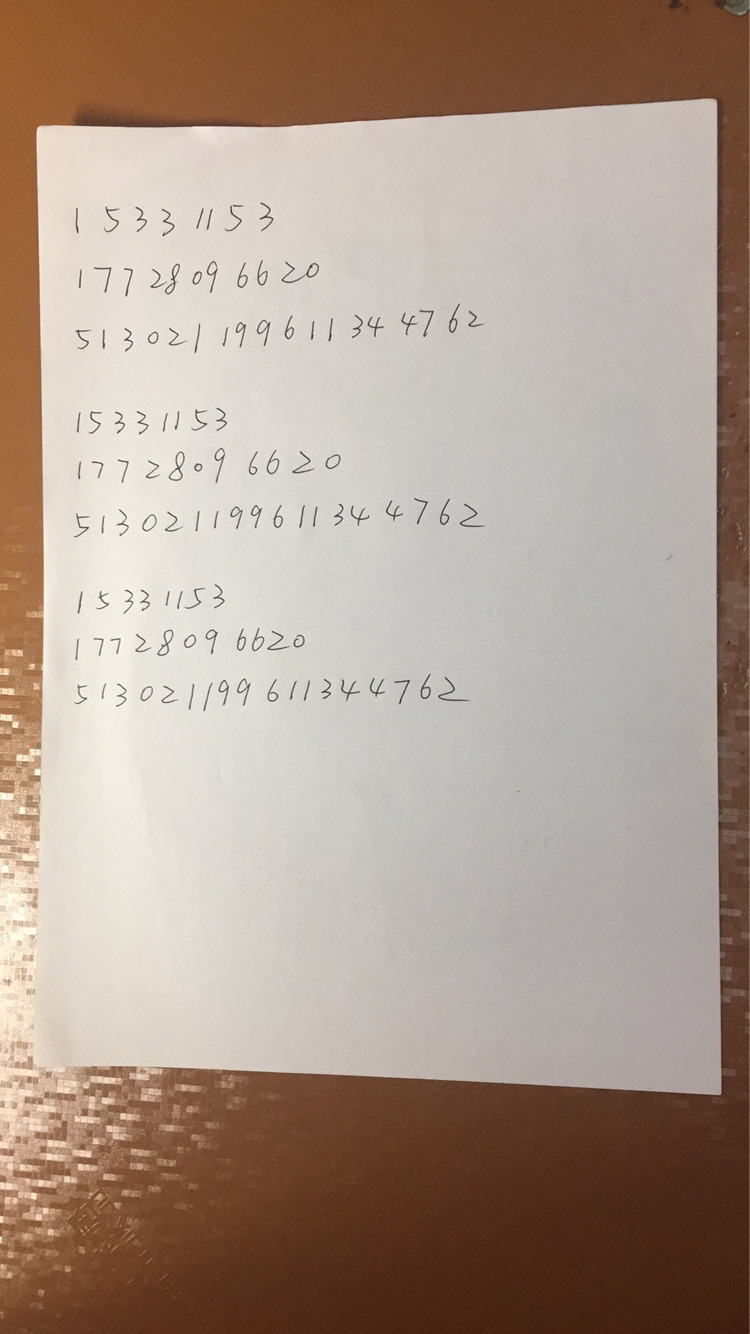 15331153
17728096620
513021199611344762
15331153
17728096620
513021199611344762
15331153
17728096620
513021199611344762